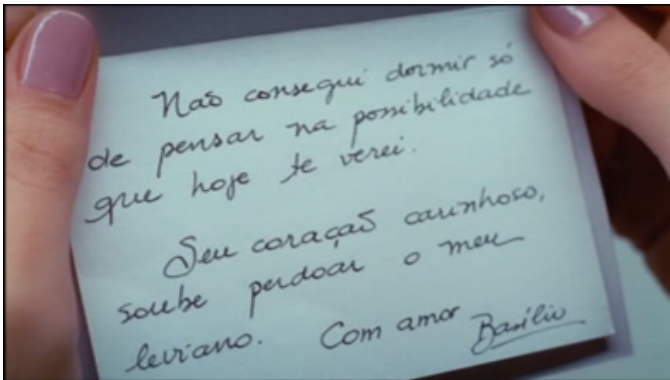 Não consegui dormir só
de pensar na possibilidade
que hoje te verei.
Seu coração carinhoso,
soube perdoar o meu
leviano. Com amor
Basílio